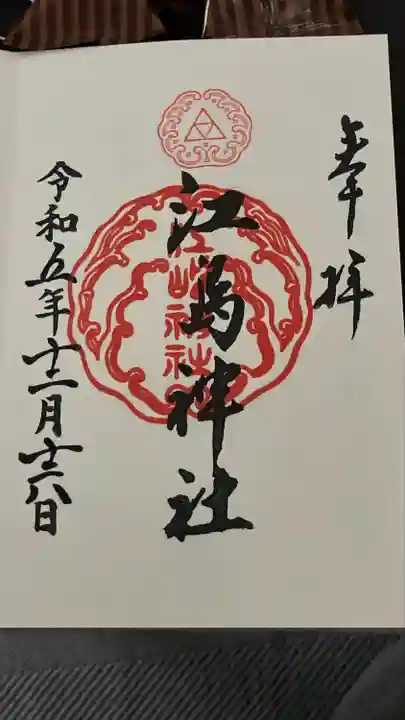 奉拝
江島神社
江島神社
令和五年十二月十六日